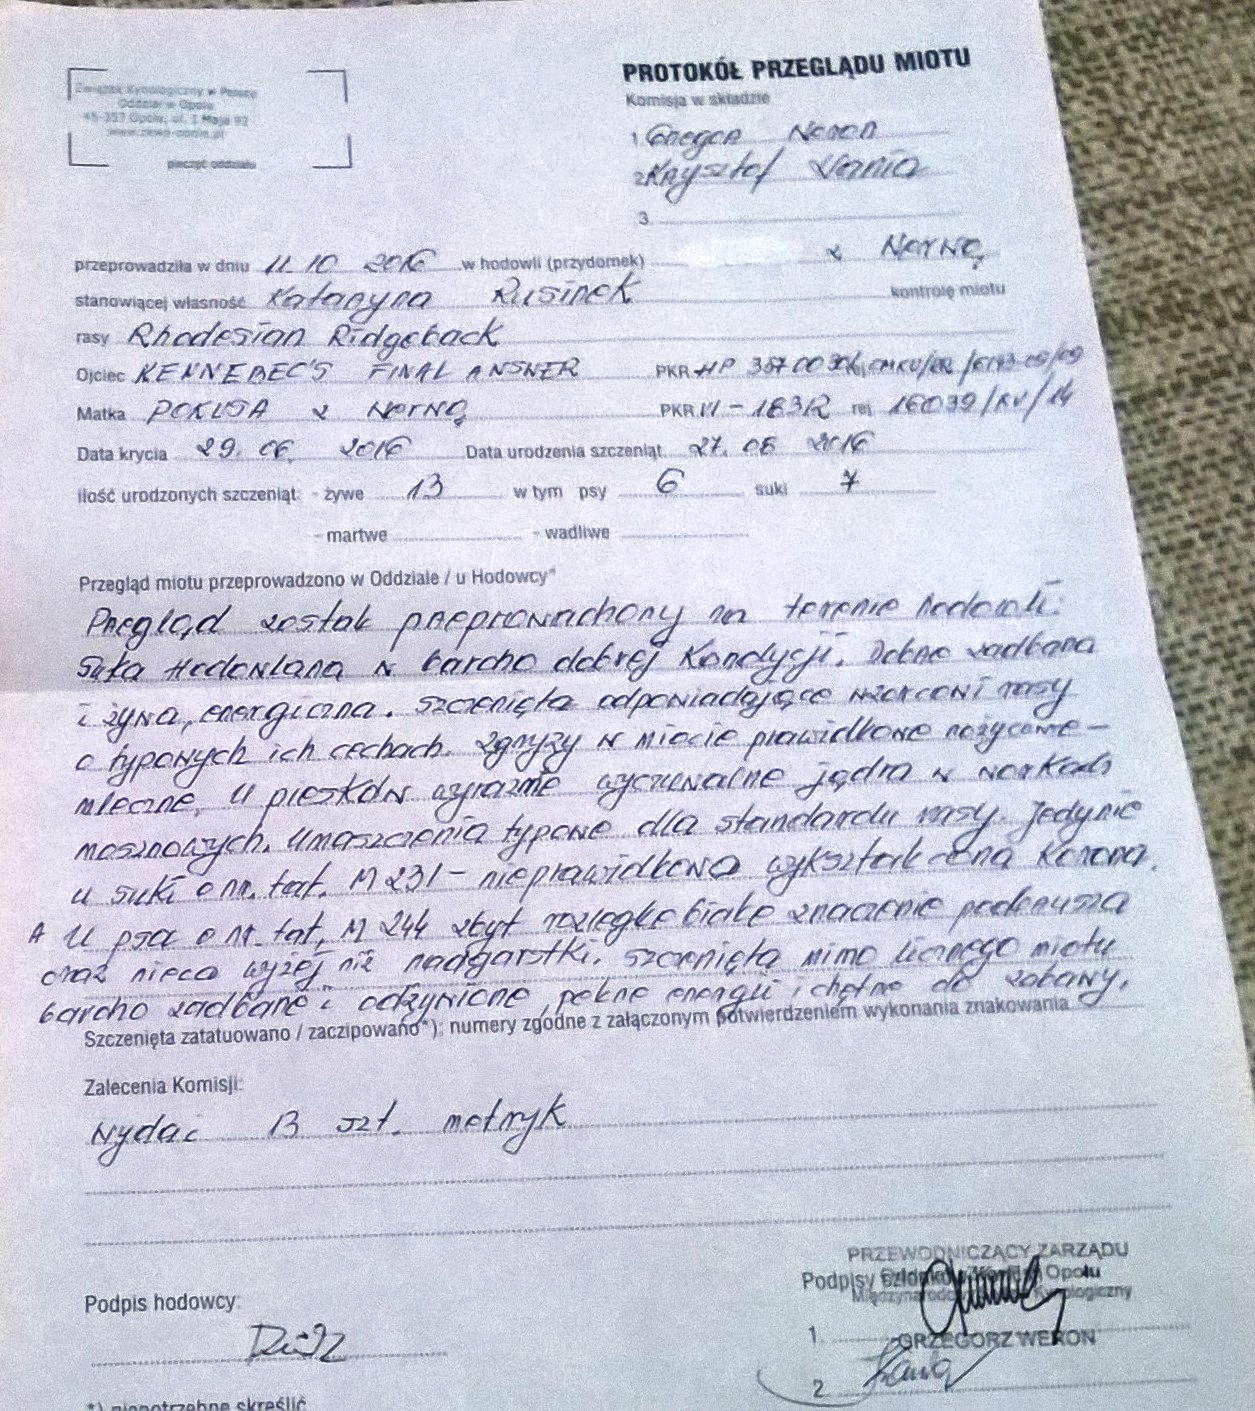 Związek Kynologiczny w Polsce
Oddział w Opolu
45-357 Opole, ul. 1 Maja 92
www.zkwp-opole.pl
pieczęć oddziału
PROTOKÓŁ PRZEGLĄDU MIOTU
Komisja w składzie
1 Grzegorz Weron
2 Krzysztof Wania
3
przeprowadziła w dniu 11.10 2016 w hodowli (przydomek) z Nerwą
stanowiącej własność Katarzyna Rusinek kontrolę miotu
rasy Rhodesian Ridgeback
Ojciec KENNEBEC'S FINAL ANSWER PKR HP
Matka POKUSA z NERWĄ PKR VI - 18312 rej 16039/RV/14
Data krycia 29. 06. 2016 Data urodzenia szczeniąt 27. 08 2016
ilość urodzonych szczeniąt: - żywe 13 w tym psy 6 suki 7
- martwe - wadliwe
Przegląd miotu przeprowadzono w Oddziale / u Hodowcy*
Przegląd został przeprowadzony na terenie hodowli.
Suka Hodowlana w bardzo dobrej Kondycji. Dobrze zadbana
i żywa, energiczna. Szczenięta odpowiadające wzorcowi rasy
o typowych ich cechach. Zgryzy w miocie prawidłowe nożycowe -
mleczne. U piesków wyraźnie wyczuwalne jądra w workach
mosznowych. Umaszczenia typowe dla standardu rasy. Jedynie
u suki o nr. tat. M 231 - nieprawidłowo wykształcona Korona.
A U psa o nr. tat. M 244 zbyt rozległe białe znaczenie podbrzusza
oraz nieco wyżej niż nadgarstki. Szczenięta mimo licznego miotu
bardzo zadbane i odżywione, pełne energii i chętne do zabawy.
Szczenięta zatatuowano / zaczipowano*); numery zgodne z załączonym potwierdzeniem wykonania znakowania
Zalecenia Komisji:
Wydać 13 szt. metryk
Podpis hodowcy:
PRZEWODNICZĄCY ZARZĄDU
Podpisy członków Opolu
Kynologiczny
1. GRZEGORZ WERON
2
*) niepotrzebne skreślić